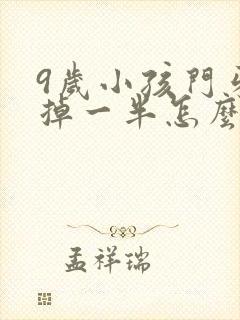 9歲小孩門牙
掉一半怎麼
孟祥瑞